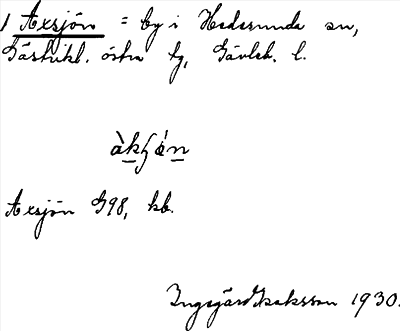 1 Axsjön = by i Hedesunda sn,
Gästrikl. östra tg, Gävleb. l.
àkʃǿn
Axsjön G98, kb.
Ingegärd Isaksson 1930.